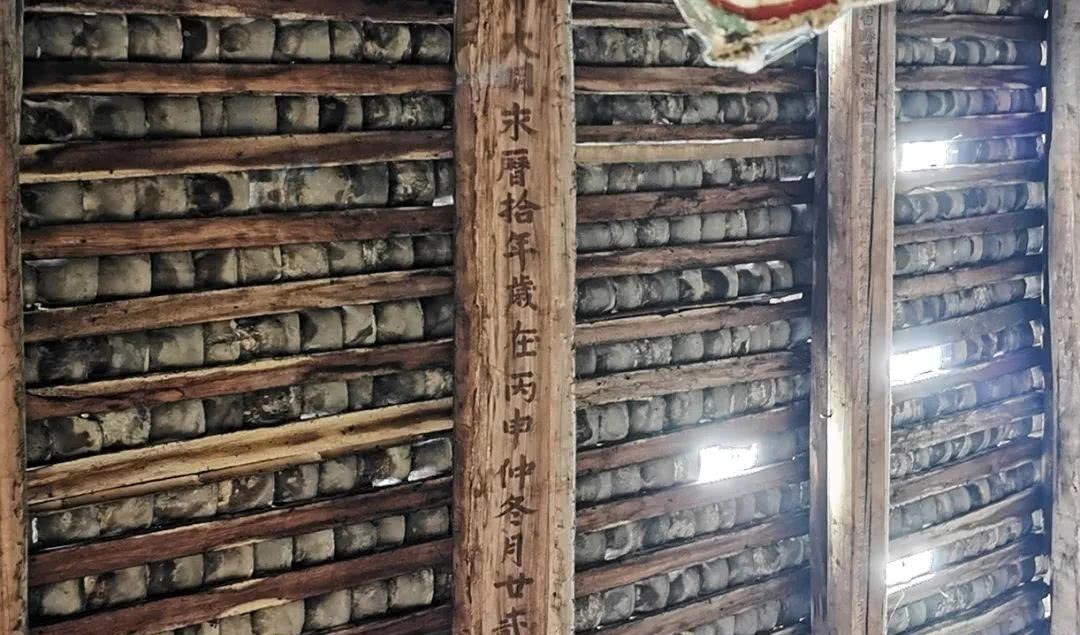 大明永曆拾年歲在丙申仲冬月廿